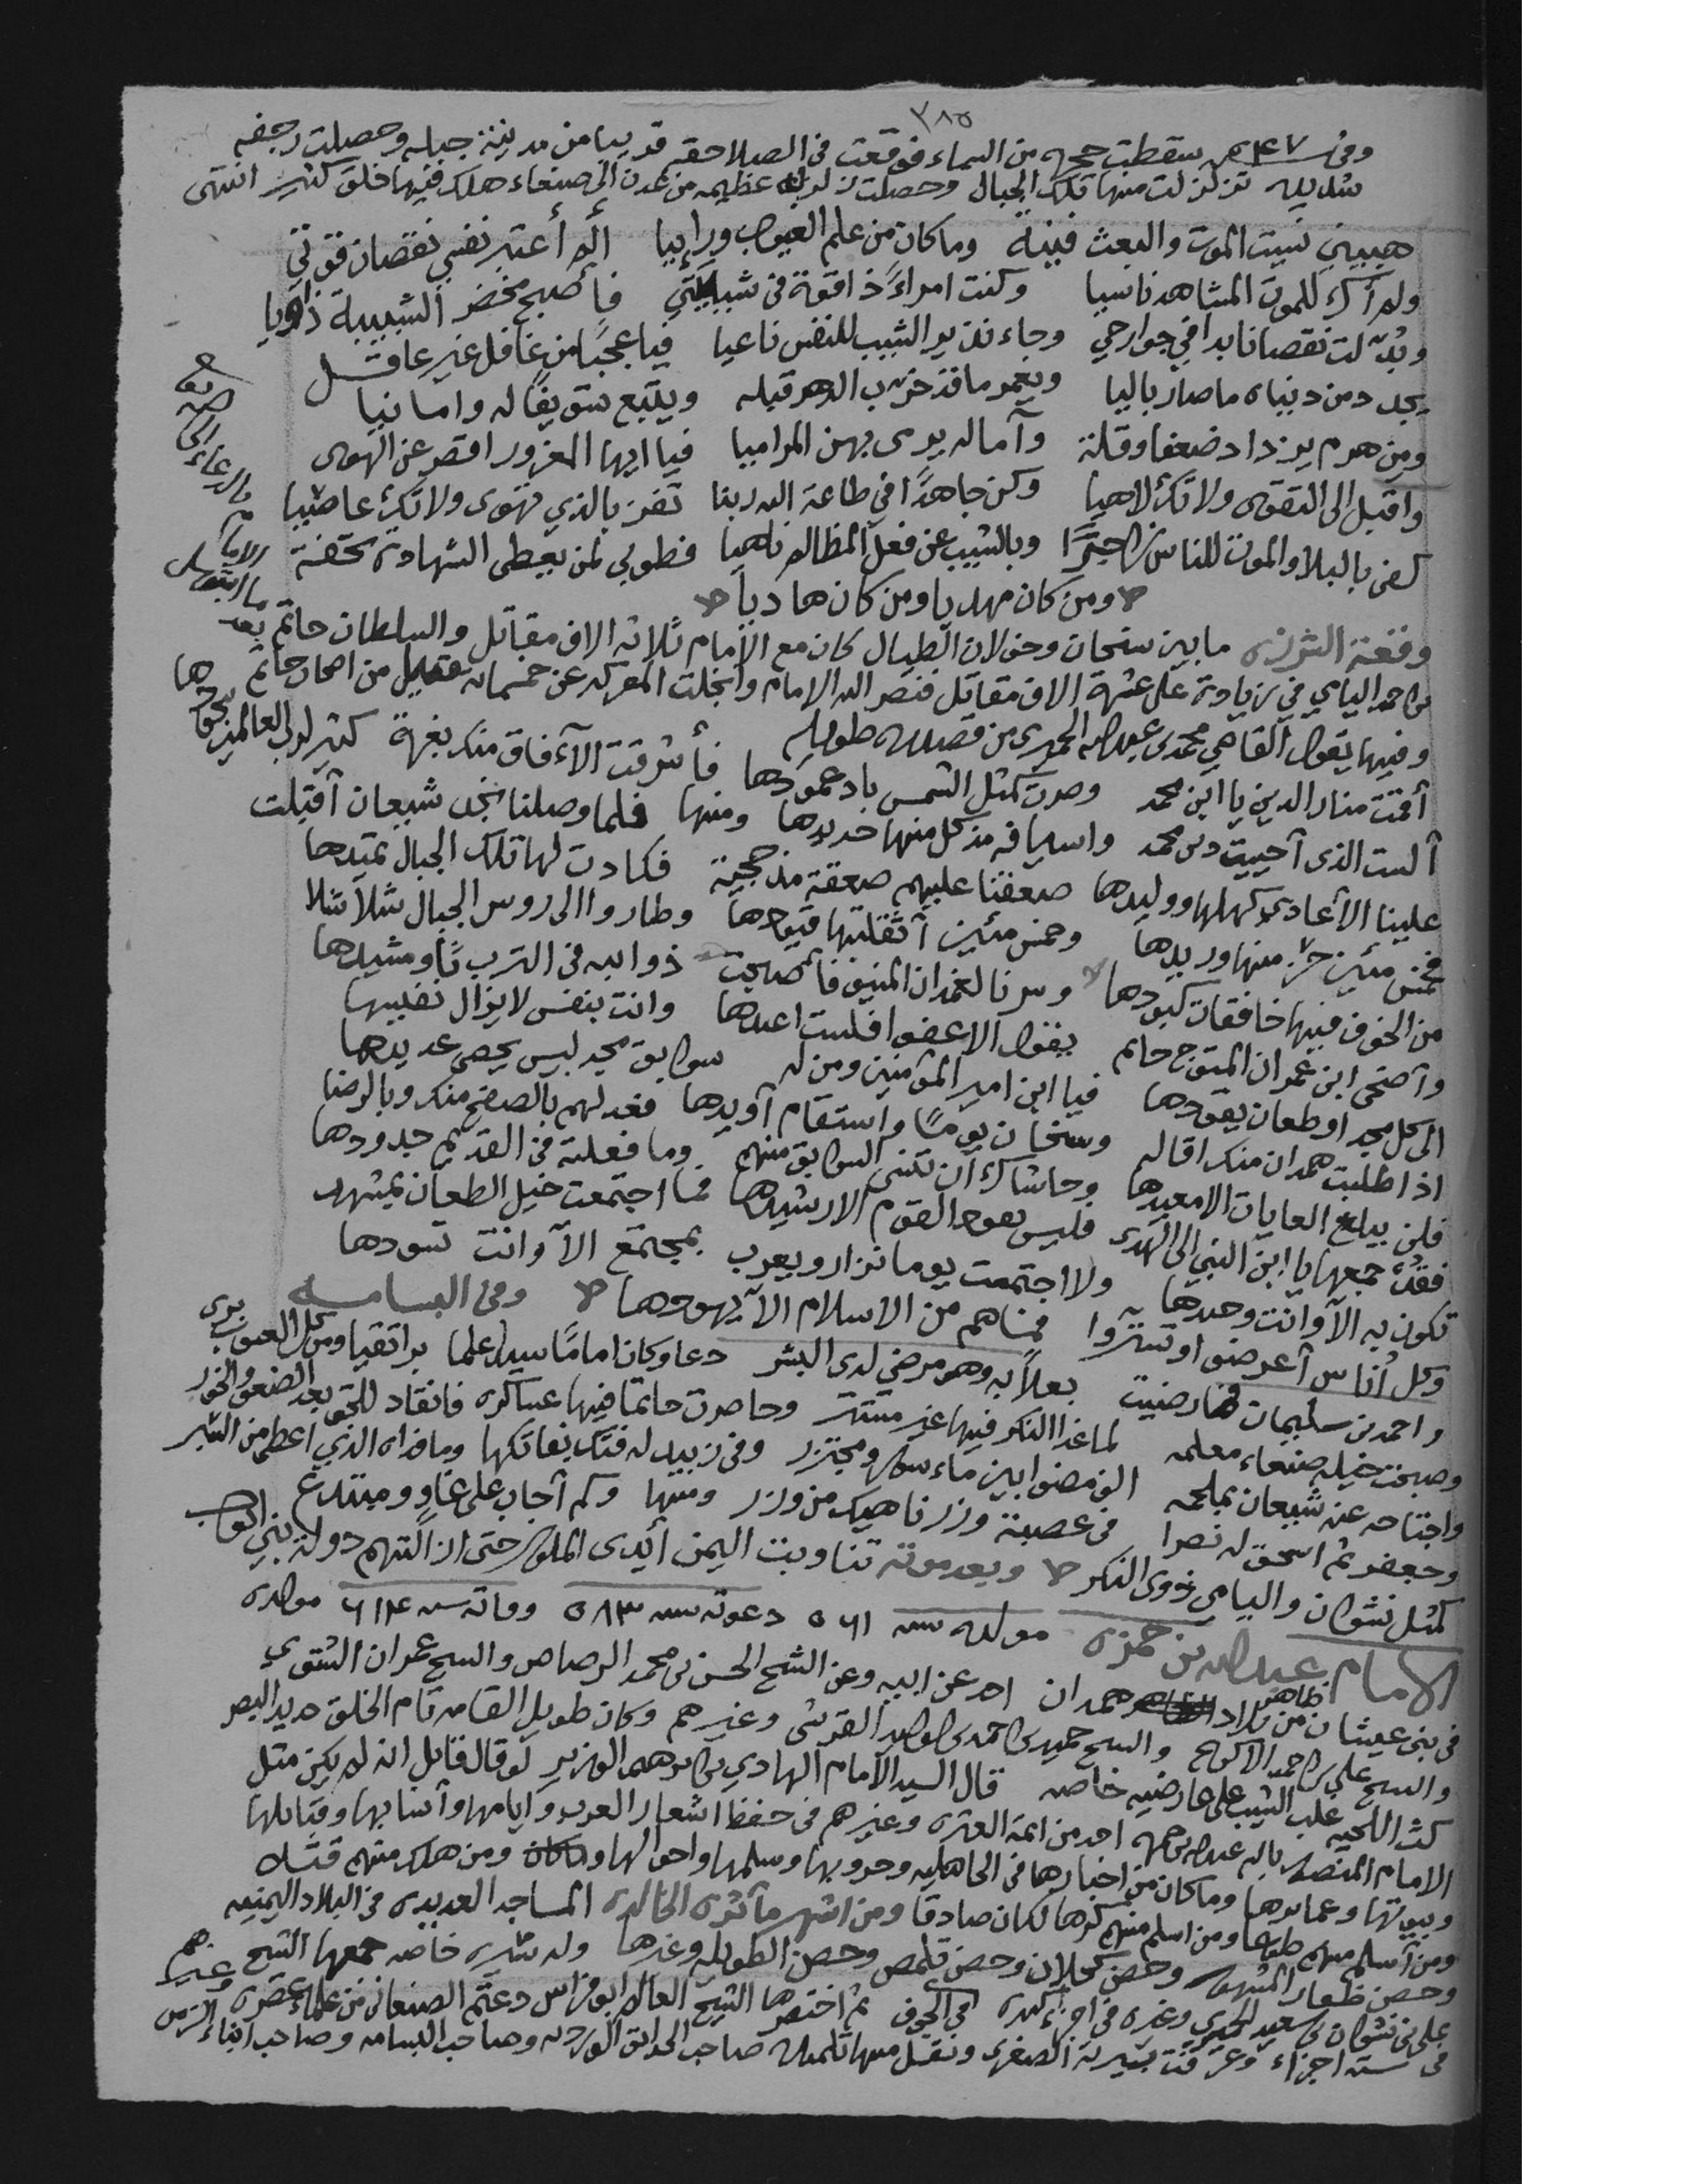 ٣٨٥
وفي سقطت حجره من السماء فوقعت في الصلاحفه قريبا من مدينة جبله وحصلت رجفه
شديده تزلزلت منها تلك الجبال وحصلت زلزله عظيمه من عدن الى صنعاء هلك فيها خلق كثير انتهى
هبيني نسيت الموت والبعث فينة وما كان من علم الغيوب ورائيا ألم أعتبر نفسي نقصان قوتي
ولم أك للموت المشاهد ناسيا وكنت امراءً ذا قوة في شبيبتي فأصبح مخضر الشبيبة ذاويا
وبُدّلت نقصانا بدا في جوارحي وجاء نذير الشيب للنفس ناعيا فيا عجبًا من غافل غير عاقل
يجدد من دنياه ما صار باليا ويعمر ما قد خرب الدهر قبله ويتبع تسويفًا له وامانيا
ومن هرم يزداد ضعفا وقلة وآماله يرمي بهن المراميا فيا ايها المغرور اقصر عن الهوى
واقبل الى التقوى ولا تك لاهيا وكن جاهدًا في طاعة الله ربنا تفز بالذي تهوى ولا تك عاصيا
كفى بالبلا والموت للناس زاجرًا وبالشيب عن فعل المظالم ناهيا فطوبى لمن يعطى الشهادة تحفة
ومن كان مهديا ومن كان هاديا
وقعة الشرزه ما بين سنحان وخولان الطيال كان مع الامام ثلاثه الاف مقاتل والسلطان حاتم
بن احمد اليامي في زيادة على عشرة الاف مقاتل فنصر الله الامام وانجلت المعركه عن خمسمائه قتيل من اصحاب حاتم
وفيها يقول القاضي محمد بن عبدالله الحميري من قصيده طويله
أقمت منار الدين يا ابن محمد وصرت كمثل الشمس باد عمودها فأشرقت الآفاق منك بغرة كثير لرب العالمين سجودها
ألست الذي أحييت دين محمد واسيافه مذ كل منها حديدها ومنها فلما وصلنا نجد شيعان أقبلت
علينا الأعادي كهلها ووليدها صعقنا عليهم صعقة مذحجية فكادت لها تلك الجبال تميدها
فخمس مئين حز منها وريدها وخمس مئين أثقلتها قيودها وطاروا الى روس الجبال شلاشلا
من الخوف فيها خافقات كبودها وسرنا لغمدان المنيف فأصبحت ذوائبه في الترب ثاو مشيدها
وأضحى ابن عمران المتوج حاتم يقول الا عفوا فلست اعيدها وانت بنفس لا يزال نفيسها
الى كل مجد او طعان يقودها فيا ابن امير المؤمنين ومن له سوابق مجد ليس يحصى عديدها
اذا طلبت همدان منك اقاله وسنحان يومًا واستقام أويدها فعد لهم بالصفح منك وبالرضا
فلن يبلغ الغايات الا معيدها وحاشاك أن تنسى السوابق منهم وما فعلته في القديم جدودها
فقُدْ جمعها يا ابن النبي الى الهدى فليس يقود القوم الا رشيدها فما اجتمعت خيل الطعان بمشهد
تكون به الآ وانت وحيدها ولا اجتمعت يوما نزار ويعرب بمجتمع الآ وانت تسودها
وكل أناس أعرضوا او تستروا فمناهم من الاسلام الآ يهودها وفي البسامه
واحمد بن سليمان فما رضيت بعلا به وهو مرضي لدى البشر دعا وكان امامًا سيدا علما برا تقيا ومن كل العيوب بري
وصبحت خيله صنعاء معلمه لما غدا النكر فيها غير مستتر وحاصرت حاتما فيها عساكره فانقاد للحق بعد الضعف والخور
واجتاحه عند شيعان بملحمه الف مضوا بين ماسور ومجتزر وفي زبيد له فتك بفاتكها وما فداه الذي اعطى من الشبر
وجعفر ثم اسحق له نصرا في عصبة وزر ناهيك من وزر ومنها وكم أجاب على غاو ومبتدع
كمثل نشوان واليامي ذوي النكر وبعد موته تناوبت اليمن أيدي الملوك حتى ازالتهم دولة بني ايوب
الامام عبدالله بن حمزه مولده سنه ٥٦١ دعوته سنه ٥٨٣ وفاته سنه ٦١٤ مولده
في بني عيشان من بلاد ظاهر همدان اخذ عن ابيه وعن الشيخ الحسن بن محمد الرصاص والشيخ عمران الشتوي
والشيخ علي بن احمد الاكوع والشيخ حميد بن احمد بن الوليد القرشي وغيرهم وكان طويل القامه تام الخلق حديد البصر
كث اللحيه غلب الشيب على عارضيه خاصه قال السيد الامام الهادي بن ابراهيم الوزير لو قال قائل انه لم يكن مثل
الامام المنصور بالله عبدالله بن حمزه احد من ائمة العتره وغيرهم في حفظ اشعار العرب وايامها وأنسابها وقبائلها
وبيوتها وعمائرها وما كان من اخبارها في الجاهليه وحروبها وسلمها واحوالها ومن هلك منهم قتيلا
ومن أسلم منهم طوعا ومن اسلم منهم كرها لكان صادقا ومن اشهر مآثره الخالده المساجد العديده في البلاد اليمنيه
وحصن ظفار المشهور وحصن كحلان وحصن تلمص وحصن الطويله وغيرها وله سيره خاصه جمعها الشيخ
علي بن نشوان بن سعيد الحميري وغيره في اجزاء كثيره في الجوف ثم اختصرها الشيخ العالم ابو فراس دعثم الصنعاني من علماء عصره وغيرهم
في سته اجزاء وعرفت بسيرته الصغرى ونقل منها تلميذه صاحب الحدائق الورديه وصاحب البسامه وصاحب انباء الزمن